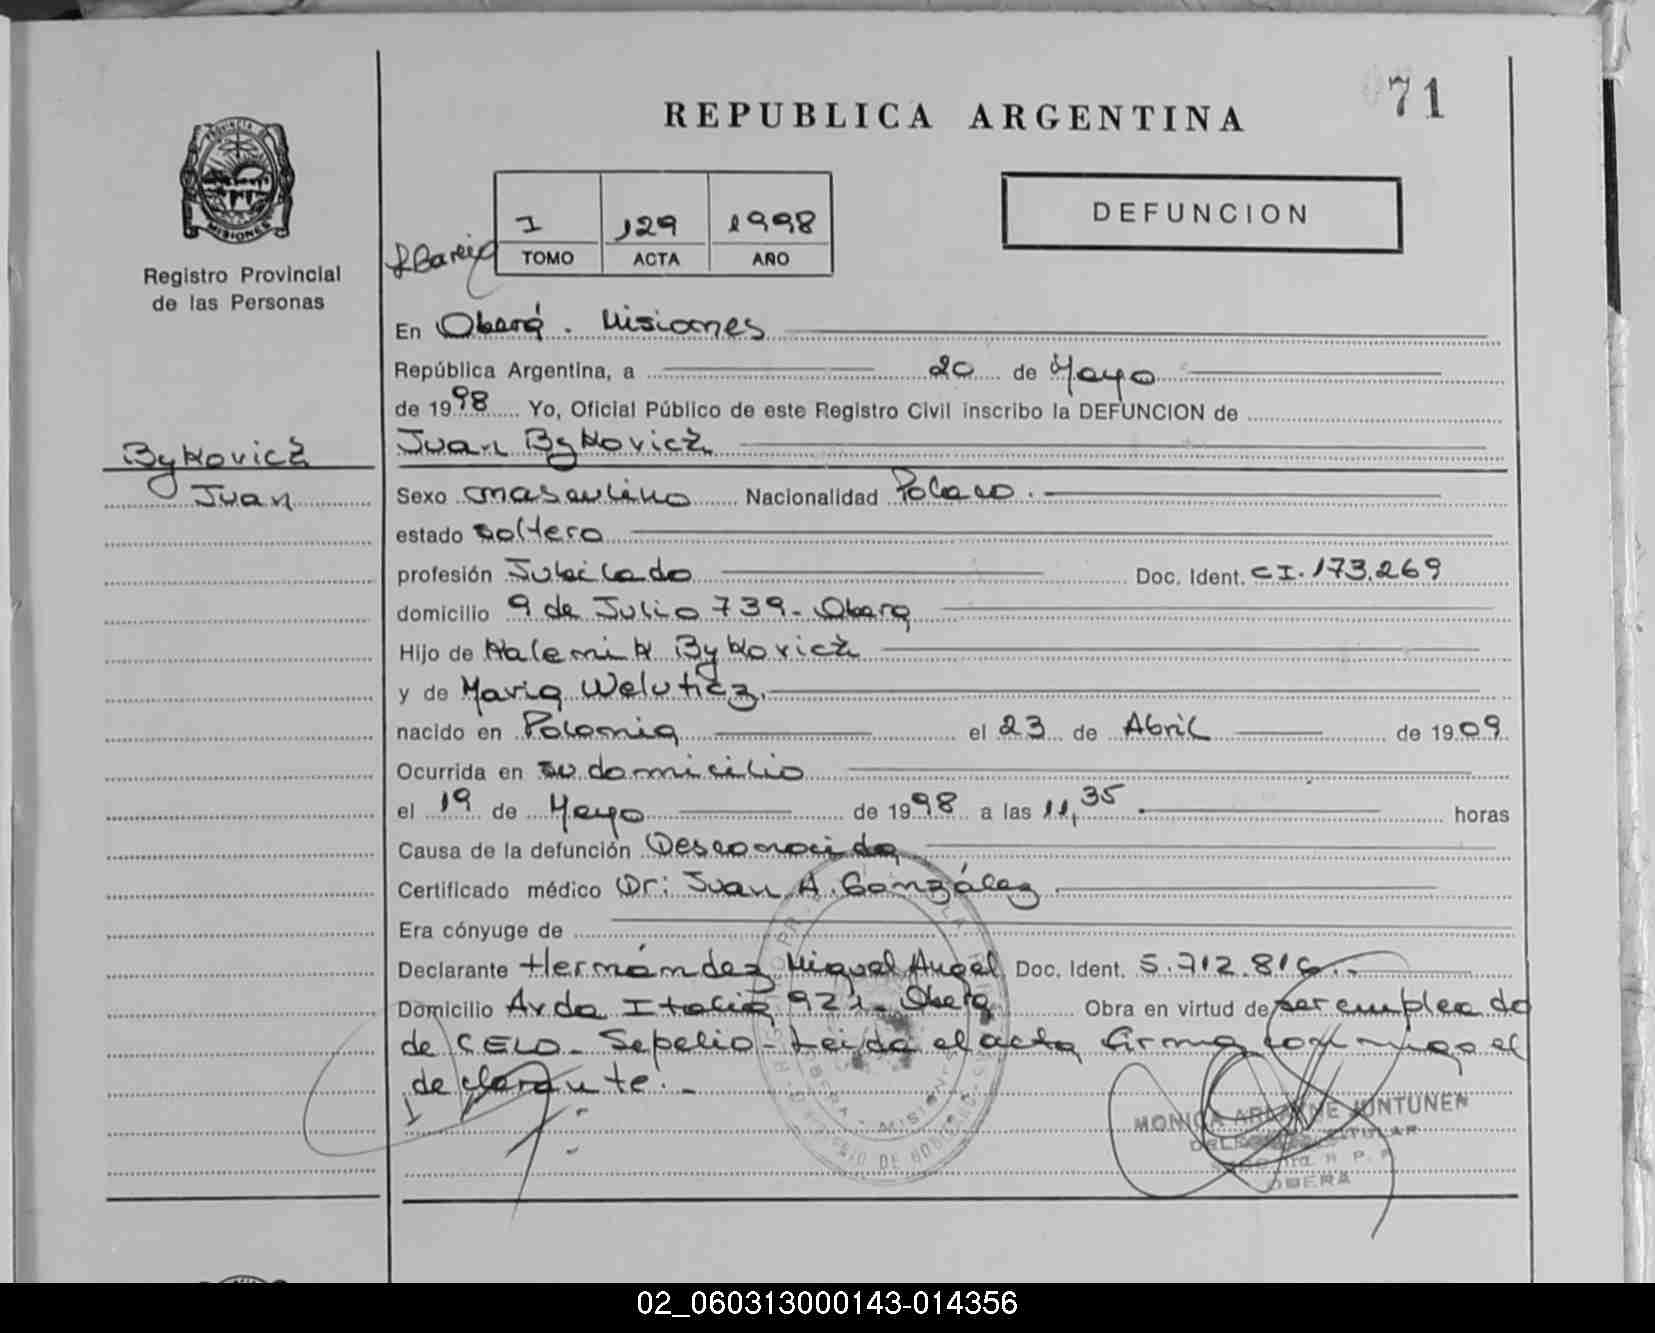 071
REPUBLICA ARGENTINA
PROVINCIA DE
MISIONES
Registro Provincial
de las Personas
I 129 1998
TOMO ACTA AÑO
DEFUNCION
En Oberá. Misiones
República Argentina, a 20 de Mayo
de 1998 Yo, Oficial Público de este Registro Civil inscribo la DEFUNCION de
Bykovicz
Juan Bykovicz
Juan
Sexo masculino Nacionalidad Polaco.
estado soltero
profesión Jubilado Doc. Ident. CI. 173.269
domicilio 9 de Julio 739- Obera
Hijo de Kalemik Bykovicz
y de Maria Weluticz.
nacido en Polonia el 23 de Abril de 1909
Ocurrida en su domicilio
el 19 de Mayo de 1998 a las 11,35 horas
Causa de la defunción Desconocida
Certificado médico Dr: Juan A. González
Era cónyuge de
Declarante Hernández Miguel Angel Doc. Ident. 5.712.816.-
Domicilio Avda Italia 921- Obera Obra en virtud de ser empleado
de CELO- Sepelio- Leida el acta firma conmigo el
declarante.-
MONICA ARIANNE JUNTUNEN
TITULAR
OBERA
02_060313000143-014356